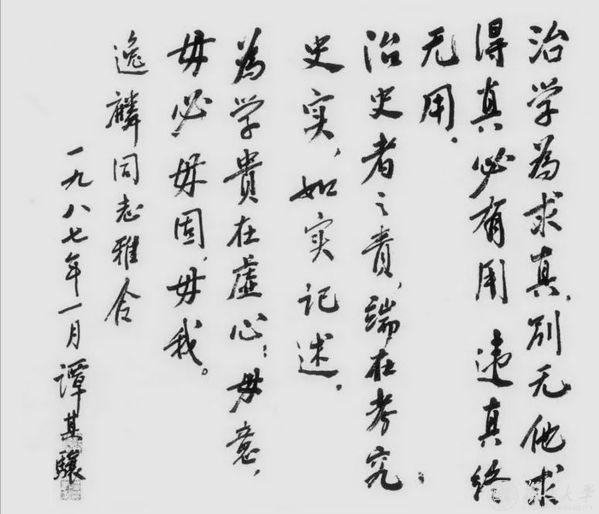 治学为求真,别无他求
得真必有用 违真终
无用.
治史者之责,端在考究
史实,如实记述.
为学貴在虚心:毋意,
毋必,毋固,毋我。
逸麟同志雅令
一九八七年一月 谭其驤